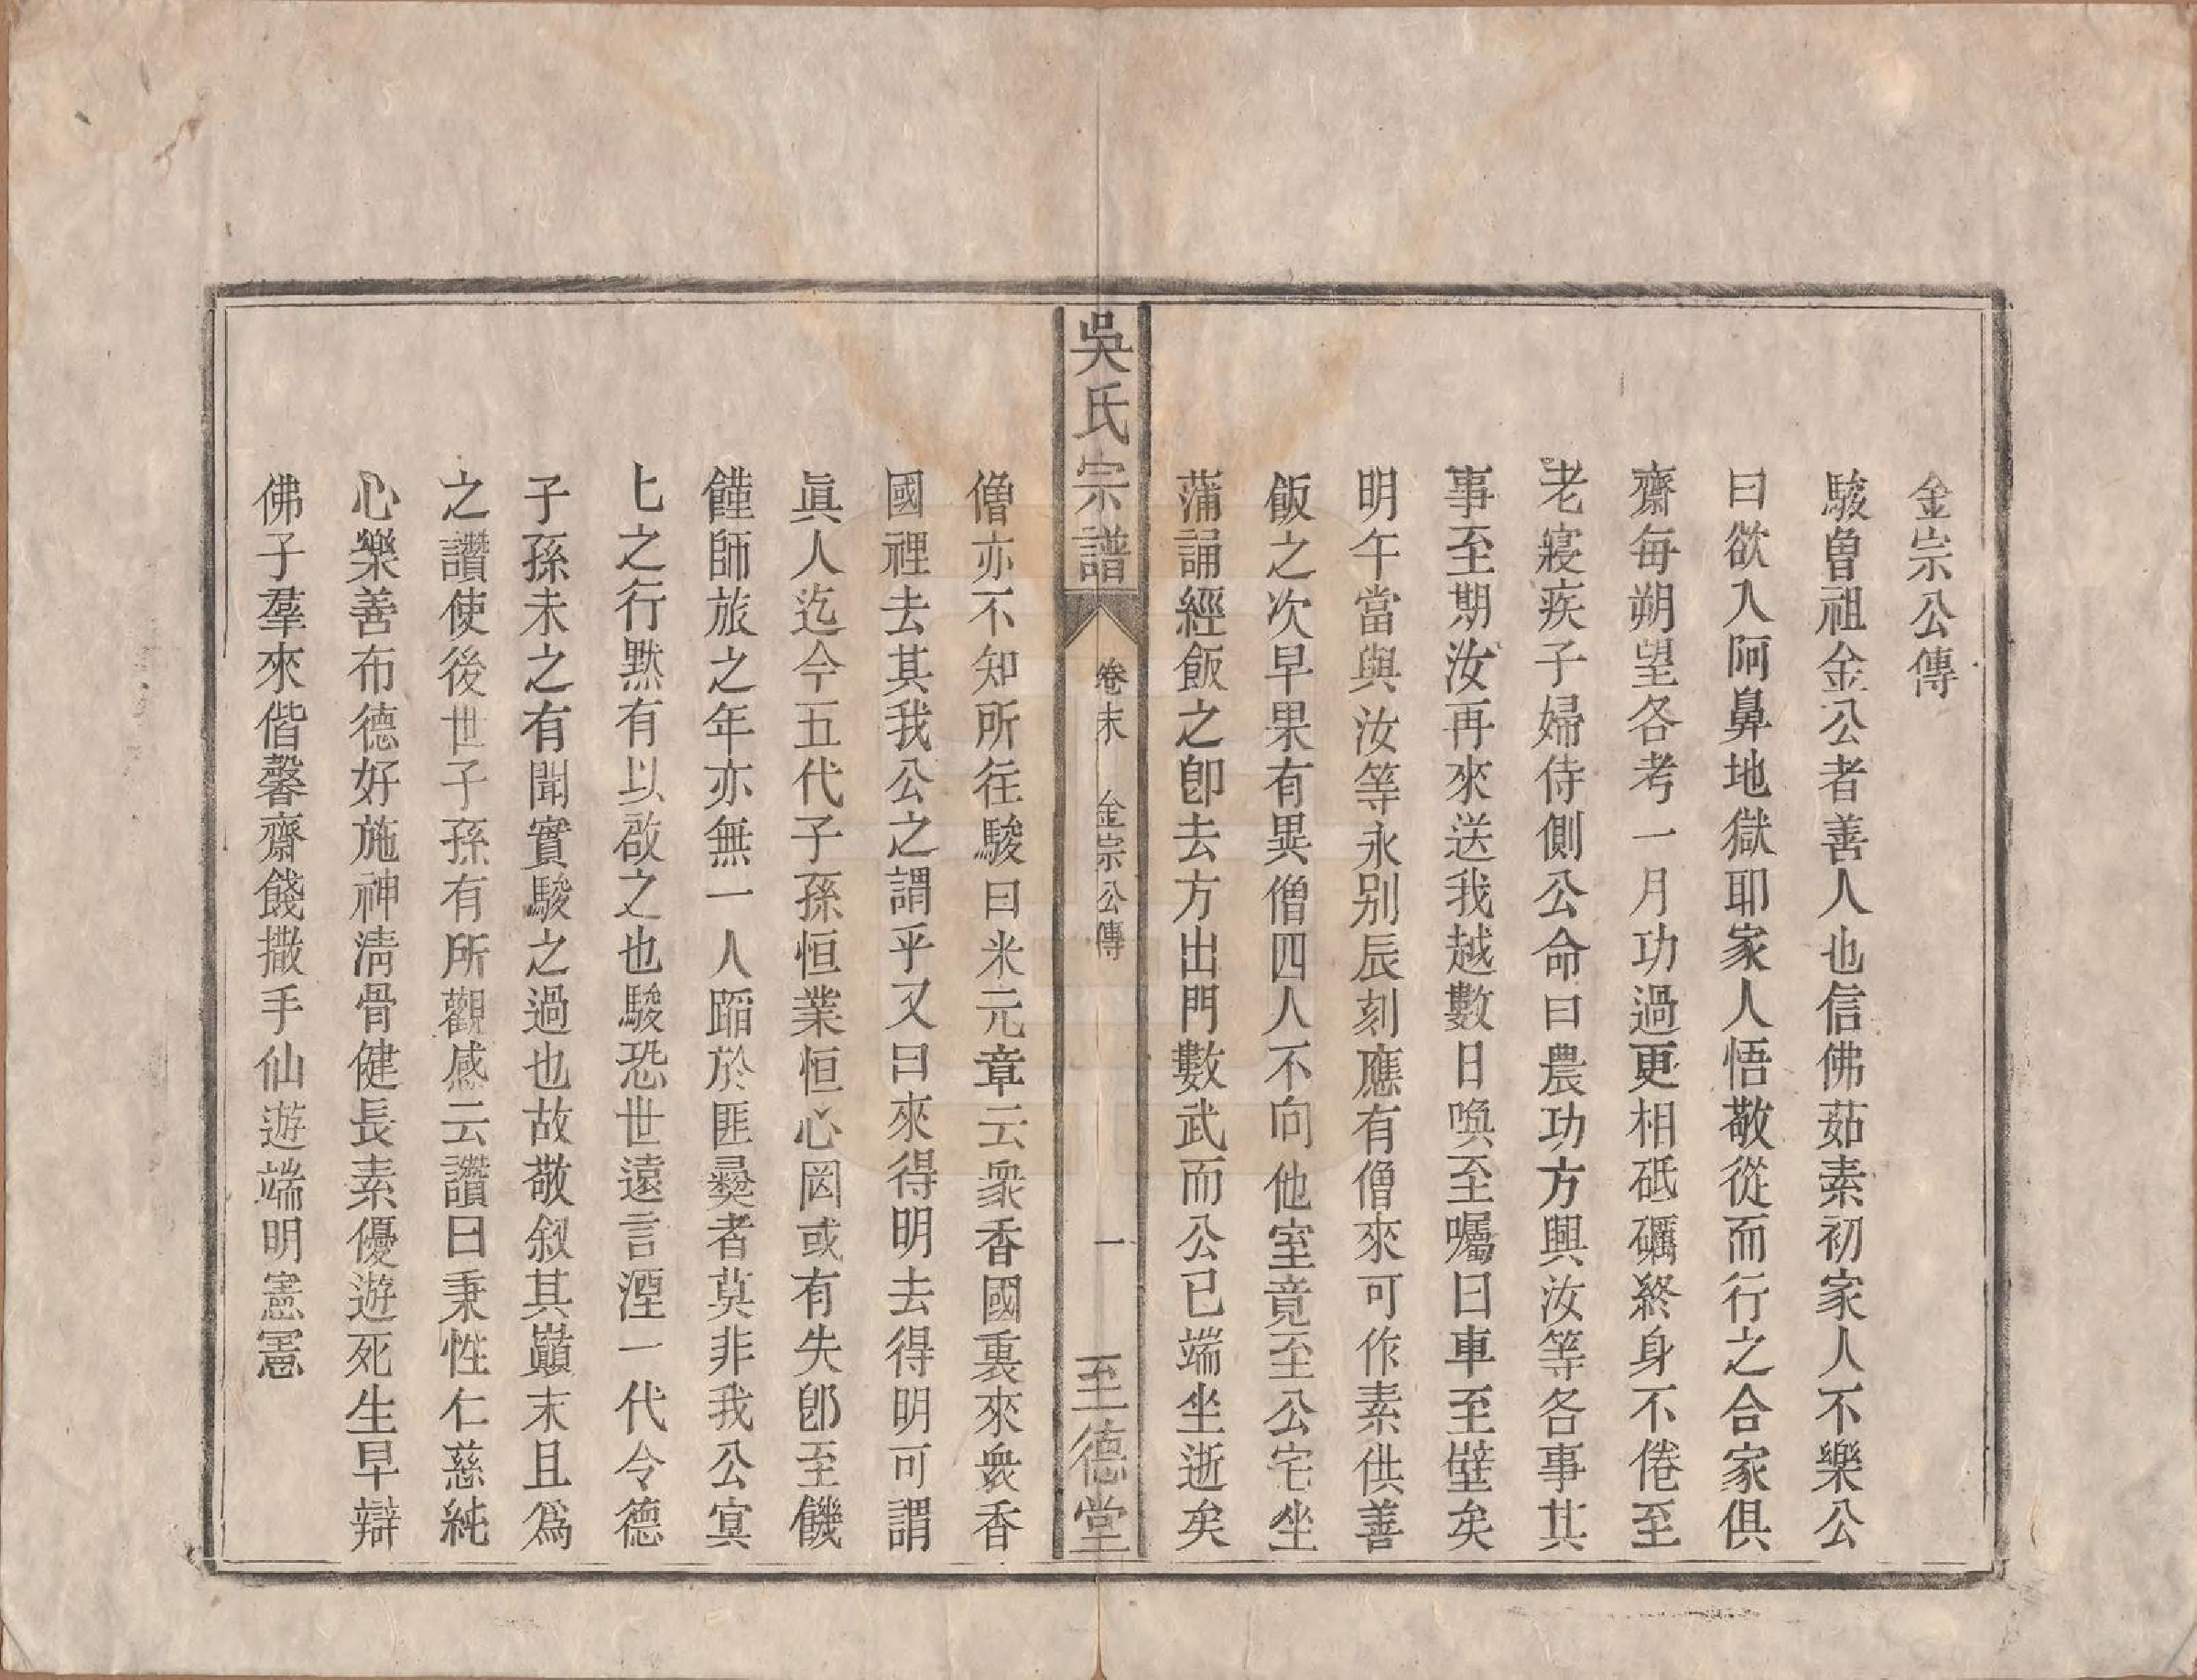 金宗公傳
駿曾祖金公者善人也信佛茹素初家人不樂公
曰欲入阿鼻地獄耶家人悟敬從而行之合家俱
齋每朔望各考一月功過更相砥礪終身不倦至
老寢疾子婦侍側公命曰農功方興汝等各事其
事至期汝再來送我越數日喚至囑曰車至壁矣
明午當與汝等永别辰刻應有僧來可作素供善
飯之次早果有異僧四人不向他室竟至公宅坐
蒲誦經飯之卽去方出門數武而公已端坐逝矣
吳氏宗譜
卷末
金宗公傳
一
至德堂
僧亦不知所往駿曰米元章云衆香國裏來衆香
國裡去其我公之謂乎又曰來得明去得明可謂
眞人迄今五代子孫恒業恒心罔或有失卽至饑
饉師旅之年亦無一人蹈於匪彞者莫非我公冥
乚之行黙有以啟之也駿恐世遠言湮一代令德
子孫未之有聞實駿之過也故敬叙其巔末且爲
之讚使後世子孫有所觀感云讚曰秉性仁慈純
心樂善布德好施神淸骨健長素優遊死生早辯
佛子羣來偕馨齋餞撒手仙遊端明憲憲